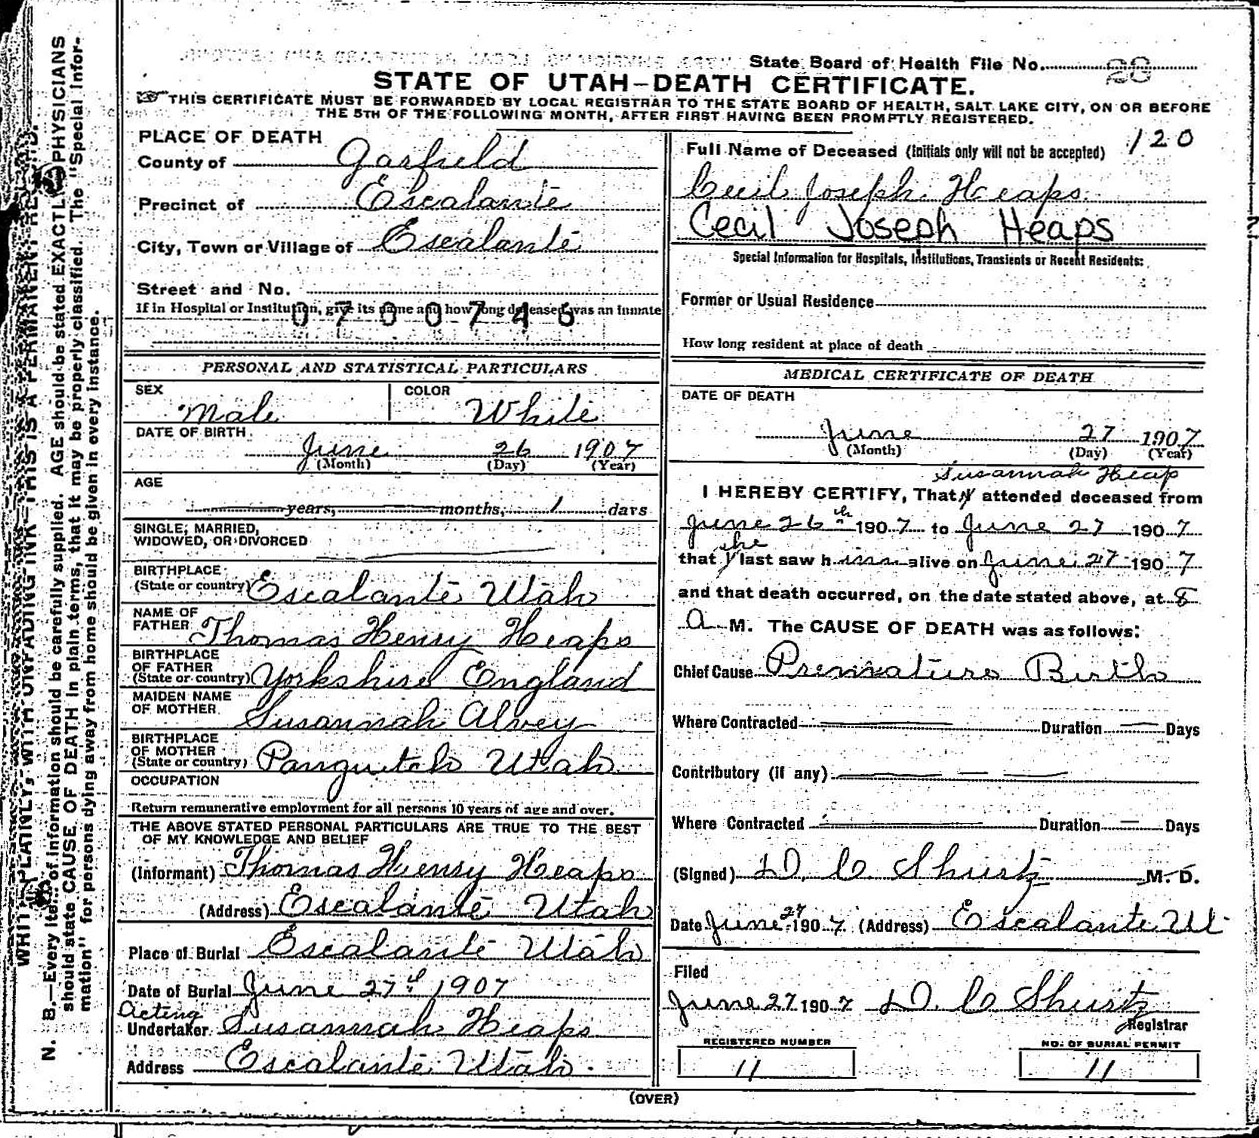 State Board of Health File No. 28
STATE OF UTAH—DEATH CERTIFICATE.
THIS CERTIFICATE MUST BE FORWARDED BY LOCAL REGISTRAR TO THE STATE BOARD OF HEALTH, SALT LAKE CITY, ON OR BEFORE
THE 5TH OF THE FOLLOWING MONTH, AFTER FIRST HAVING BEEN PROMPTLY REGISTERED.
PLACE OF DEATH
County of Garfield
Precinct of Escalante
City, Town or Village of Escalante
Street and No.
If in Hospital or Institution, give its name and how long deceased was an inmate
0700746
PERSONAL AND STATISTICAL PARTICULARS
SEX COLOR
Male White
DATE OF BIRTH
June 26 1907
(Month) (Day) (Year)
AGE
years, months, 1 days
SINGLE, MARRIED,
WIDOWED, OR DIVORCED
BIRTHPLACE
(State or country) Escalante Utah
NAME OF
FATHER Thomas Henry Heaps
BIRTHPLACE
OF FATHER
(State or country) Yorkshire England
MAIDEN NAME
OF MOTHER Susannah Alvey
BIRTHPLACE
OF MOTHER
(State or country) Panguitch Utah
OCCUPATION
Return remunerative employment for all persons 10 years of age and over.
THE ABOVE STATED PERSONAL PARTICULARS ARE TRUE TO THE BEST
OF MY KNOWLEDGE AND BELIEF
(Informant) Thomas Henry Heaps
(Address) Escalante Utah
Place of Burial Escalante Utah
Date of Burial June 27th 1907
Acting
Undertaker Susannah Heaps
Address Escalante Utah.
120
Full Name of Deceased (Initials only will not be accepted)
Cecil Joseph Heaps.
Cecil Joseph Heaps
Special Information for Hospitals, Institutions, Transients or Recent Residents:
Former or Usual Residence
How long resident at place of death
MEDICAL CERTIFICATE OF DEATH
DATE OF DEATH
June 27 1907
(Month) (Day) (Year)
Susannah Heap
I HEREBY CERTIFY, That I attended deceased from
June 26th 1907 to June 27 1907
she
that I last saw him alive on June 27 1907
and that death occurred, on the date stated above, at 8
A M. The CAUSE OF DEATH was as follows:
Chief Cause Premature Birth
Where Contracted Duration Days
Contributory (if any)
Where Contracted Duration Days
(Signed) D C Shurtz M. D.
Date June 27 1907. (Address) Escalante Ut
Filed
June 27 1907 D C Shurtz
Registrar
REGISTERED NUMBER NO. OF BURIAL PERMIT
11 11
(OVER)
WRITE PLAINLY, WITH UNFADING INK—THIS IS A PERMANENT RECORD.
N. B.—Every item of information should be carefully supplied. AGE should be stated EXACTLY. PHYSICIANS
should state CAUSE OF DEATH in plain terms, that it may be properly classified. The "Special Infor-
mation" for persons dying away from home should be given in every instance.